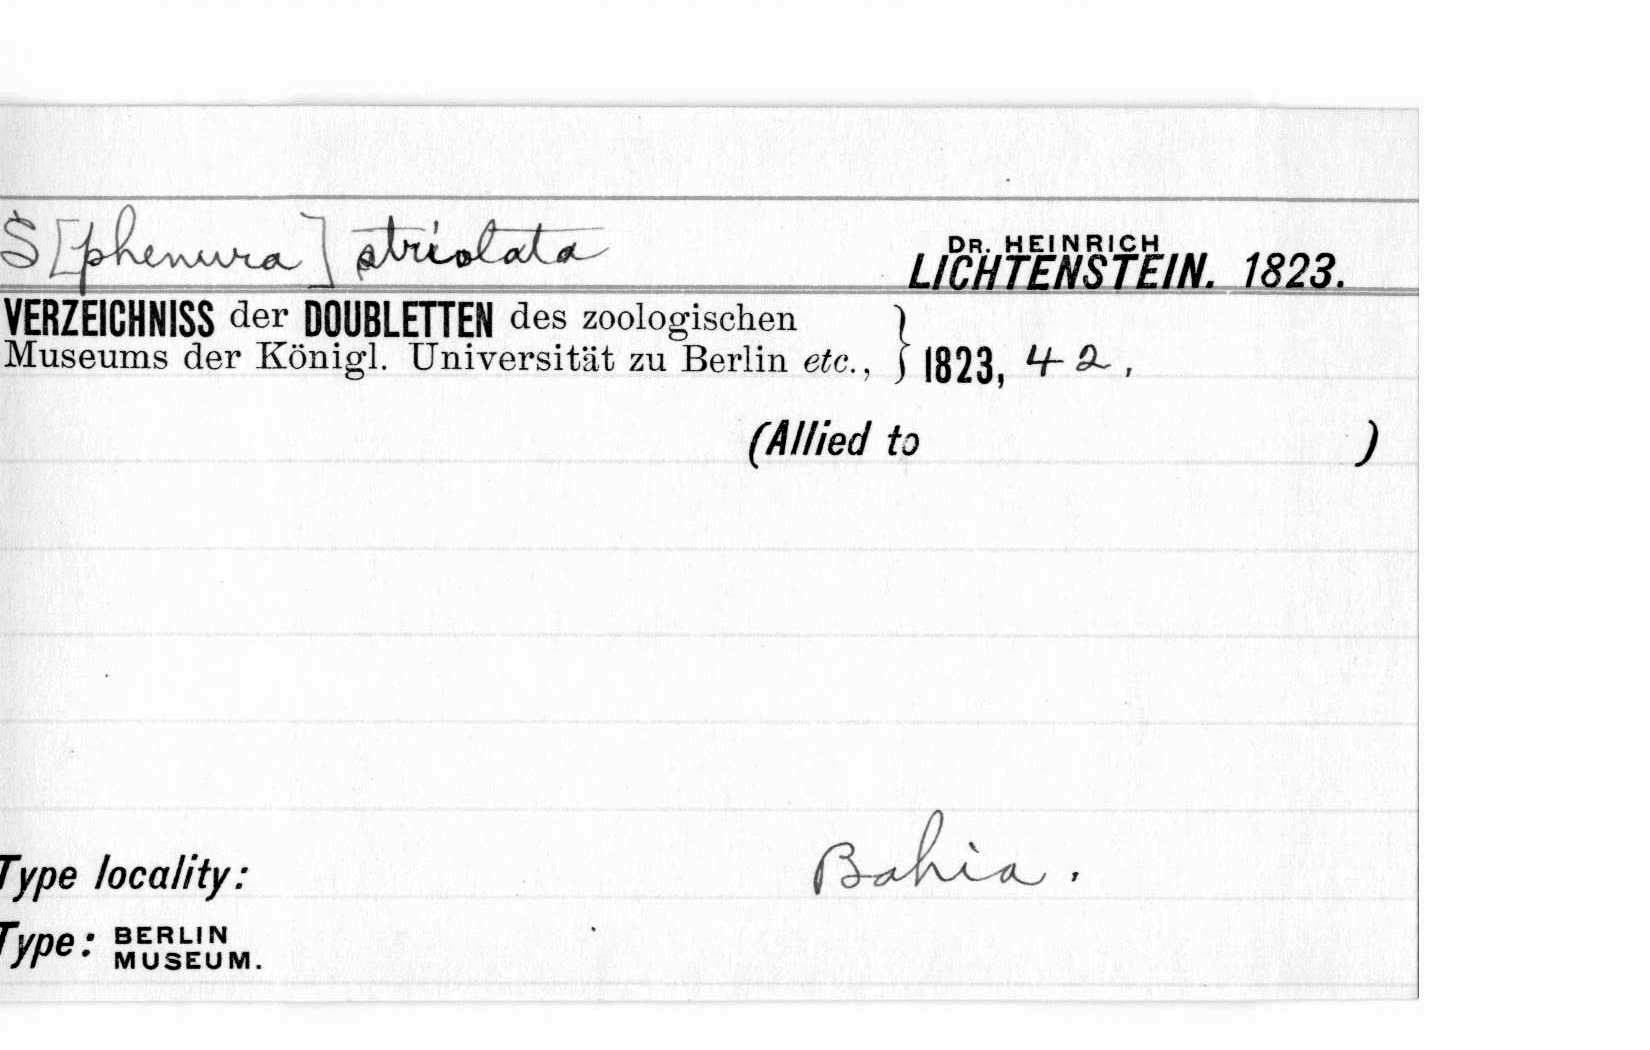 S[phenura] striolata
DR. HEINRICH
LICHTENSTEIN. 1823.
VERZEICHNISS der DOUBLETTEN des zoologischen
Museums der Königl. Universität zu Berlin etc., } 1823, 42,
(Allied to )
Type locality: Bahia.
Type: BERLIN
MUSEUM.